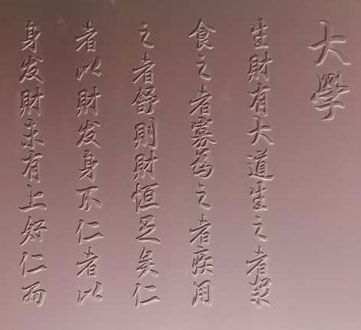 大學
生財有大道生之者衆
食之者寡為之者疾用
之者舒則財恒足矣仁
者以財发身不仁者以
身发財未有上好仁而